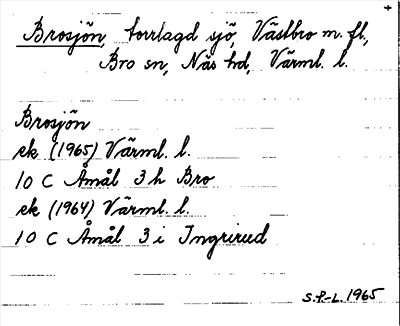 Brosjön, torrlagd sjö, Västbro m. fl.,
Bro sn, Näs hd, Värml. l.
Brosjön
ek (1965) Värml. l.
10 C Åmål 3 h Bro
ek (1964) Värml. l.
10 C Åmål 3 i Ingrirud
S.P.-L. 1965